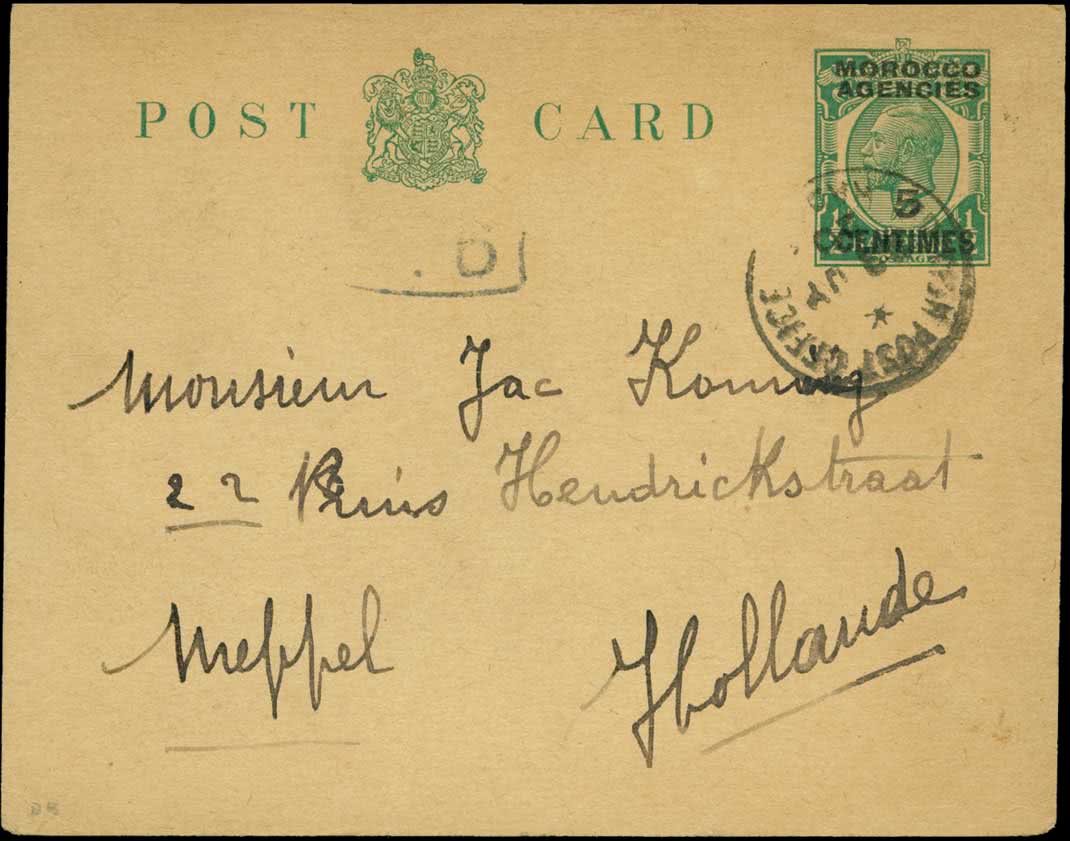 POST CARD
MOROCCO
AGENCIES
5
CENTIMES
POST OFFICE
6
Monsieur Jac
22 Prins Hendrickstraat
Meppel Hollande